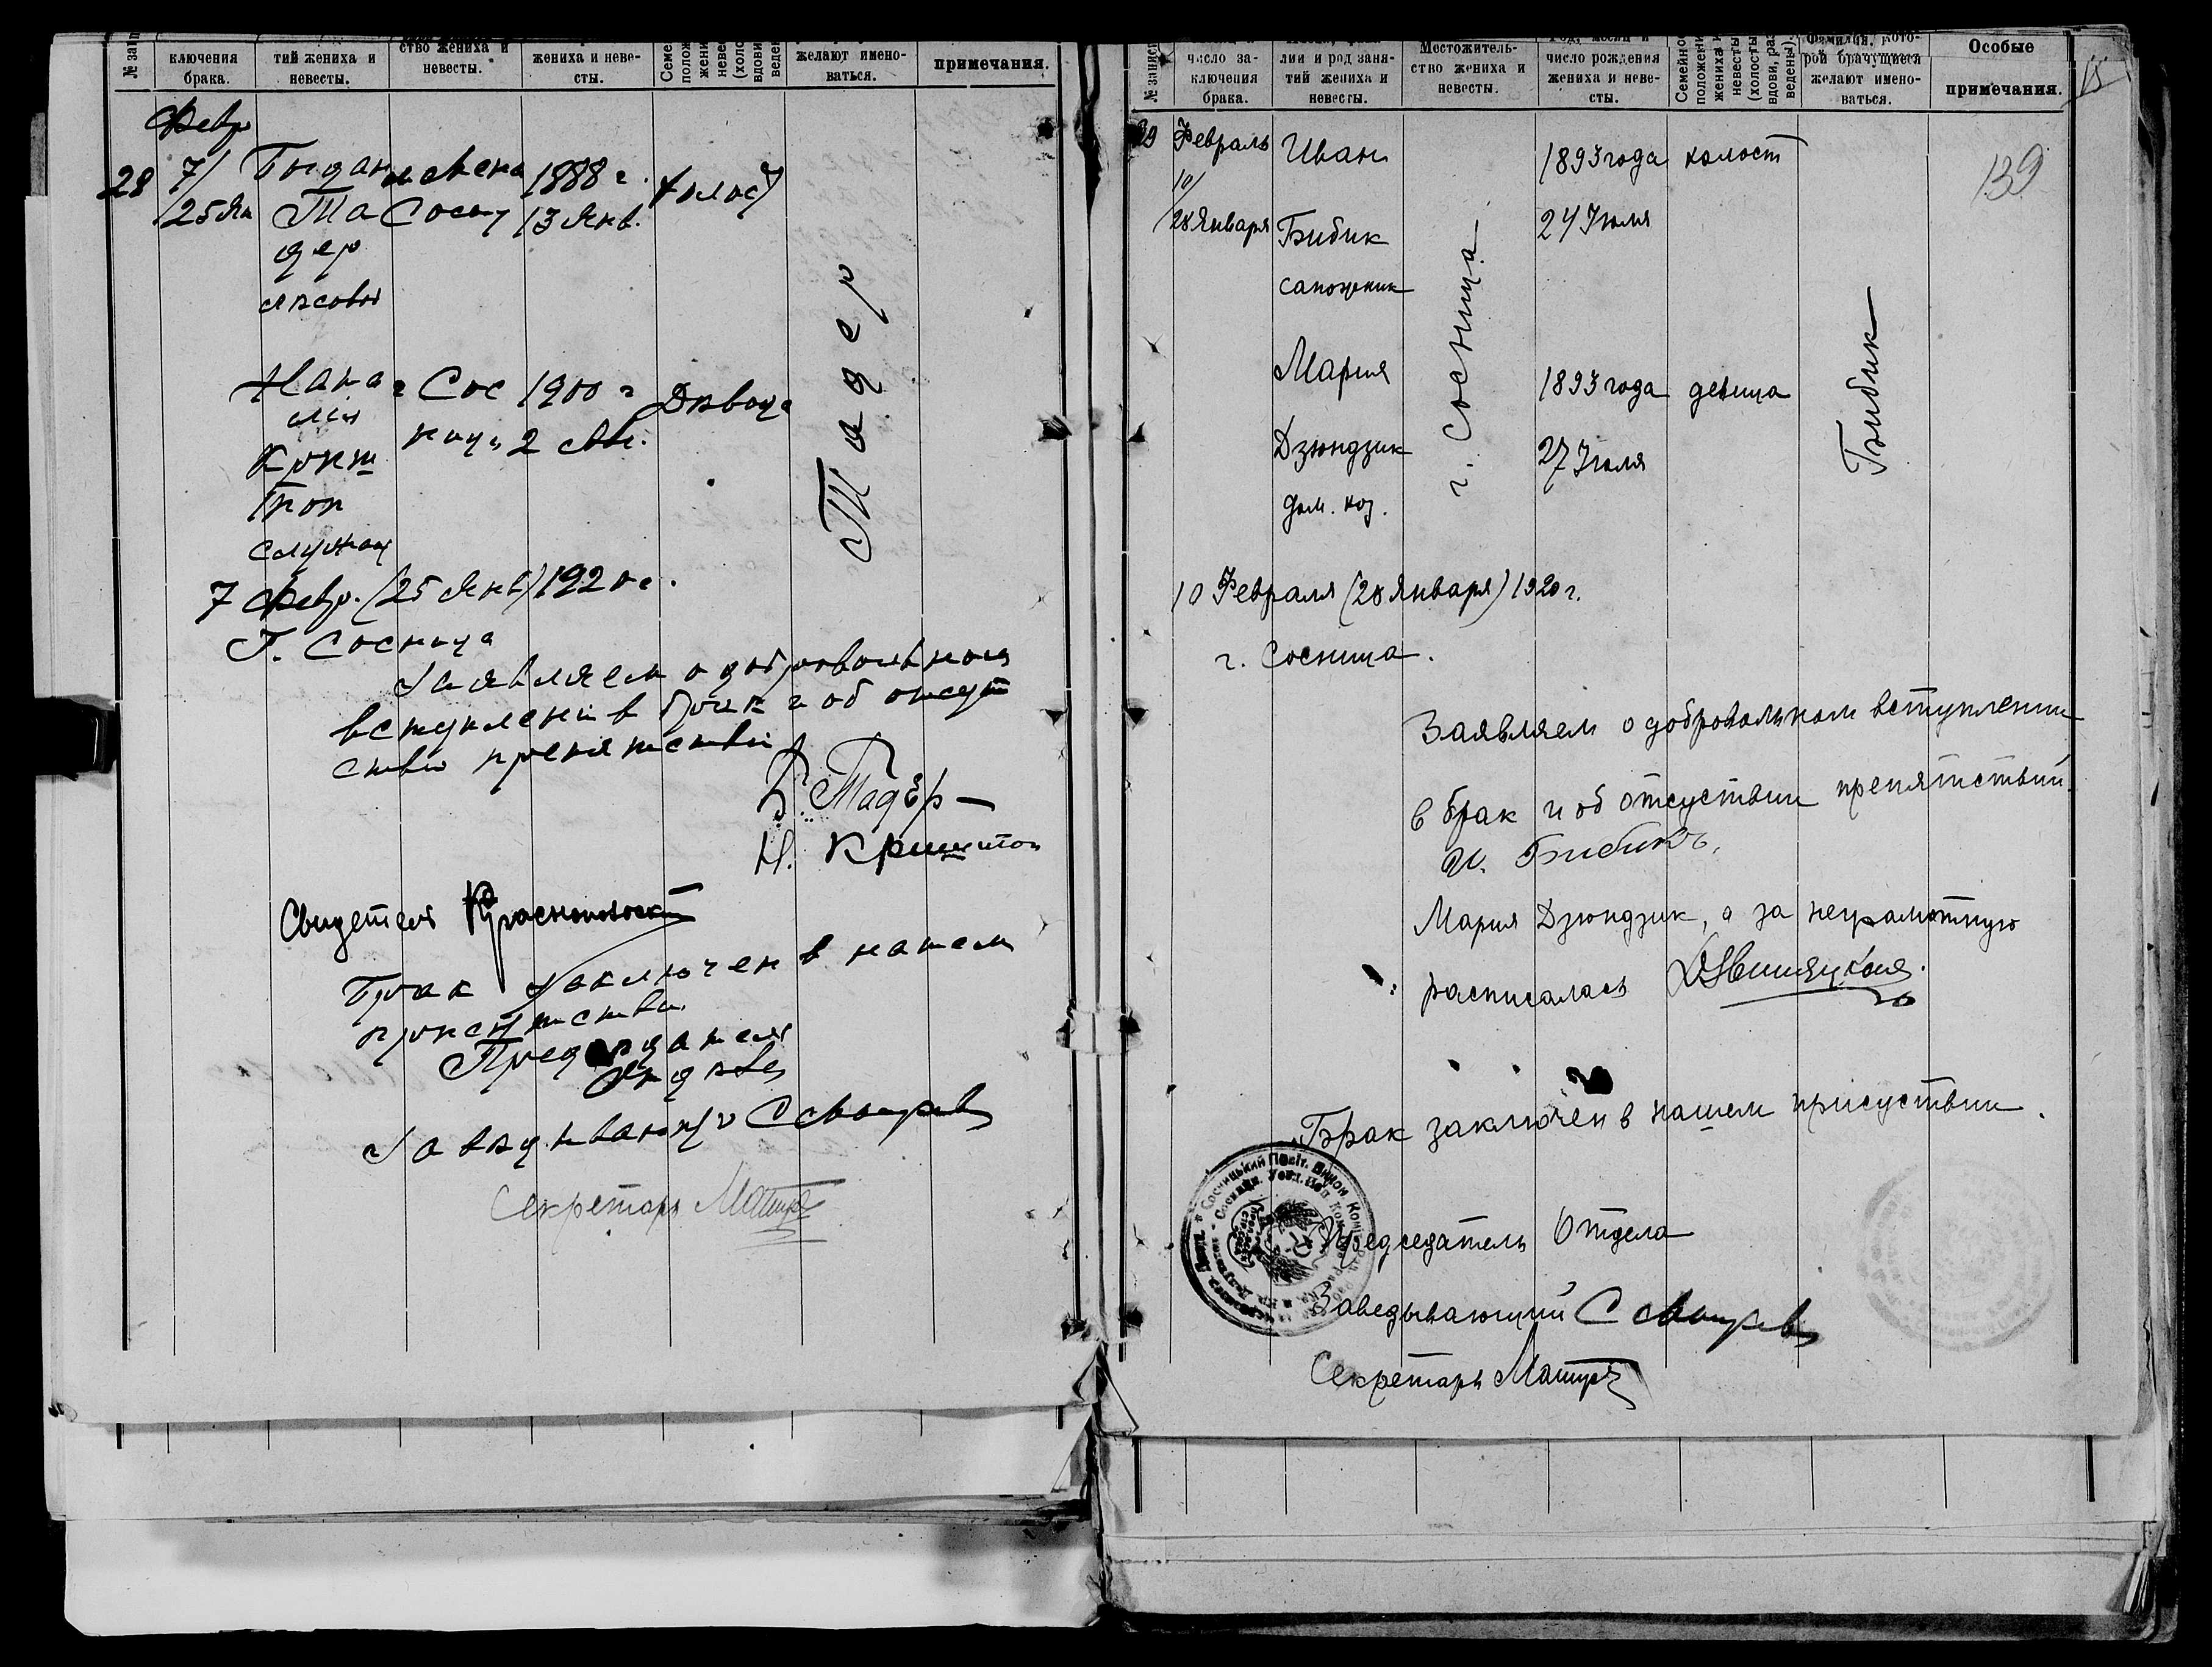 № зап
ключения
брака.
тий жениха и
невесты.
ство жениха и
невесты.
жениха и неве-
сты.
желают имено-
ваться.
примечания.
Февр
28
7/
25 Ян
Та
дер
Сосн
1888 г.
13 Янв.
холост
Тадер
г Сос
ница
1900 г
2
Девица
7 Февр. (25 Янв) 1920 г.
Г. Сосница
Заявляем о добровольном
вступлении в брак и об отсут
ствии препятствий
Б. Тадер
Н.
Свидетель
Брак заключен в нашем
присутствии
Председатель
Отдела
Заведывающий
Секретарь
№ записи
число за-
ключения
брака.
лии и род заня-
тий жениха и
невесты.
Местожитель-
ство жениха и
невесты.
Год, месяц и
число рождения
жениха и неве-
сты.
Семейное
положение
жениха и
невесты
(холосты,
вдовы, раз
ведены).
Фамилия, кото-
рой брачущиеся
желают имено-
ваться.
Особые
примечания.
15
139
Февраль
10/
28 Января
Иван
Бибик
сапожник
г. Сосница
1893 года
24 Июля
холост
Бибик
Мария
Дзюндзик
дом. хоз.
1893 года
27 Июля
девица
10 Февраля (28 Января) 1920 г.
г. Сосница.
Заявляем о добровольном вступлении
в брак и об отсуствии препятствий
И. Бибикъ.
Мария Дзюндзик, а за неграмотную
расписалась
Брак заключен в нашем присуствии.
Председатель Отдела
Заведывающий
Секретарь